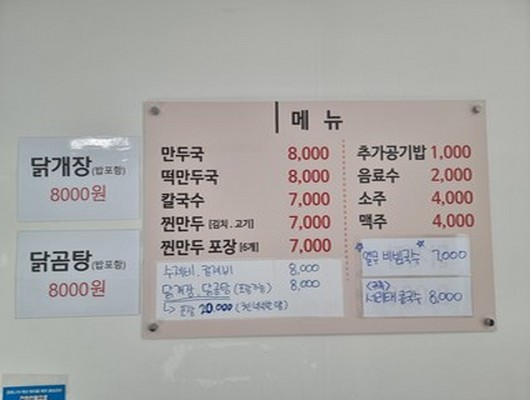 메뉴
만두국 8,000
떡만두국 8,000
칼국수 7,000
찐만두 [김치.고기] 7,000
찐만두 포장 [6개] 7,000
수제비. 칼제비 8,000
닭개장. 닭곰탕 (포장가능) 8,000
↳ 포장 20,000
추가공기밥 1,000
음료수 2,000
소주 4,000
맥주 4,000
열무 비빔국수 7,000
서리태 콩국수 8,000
닭개장 (밥포함)
8000원
닭곰탕 (밥포함)
8000원